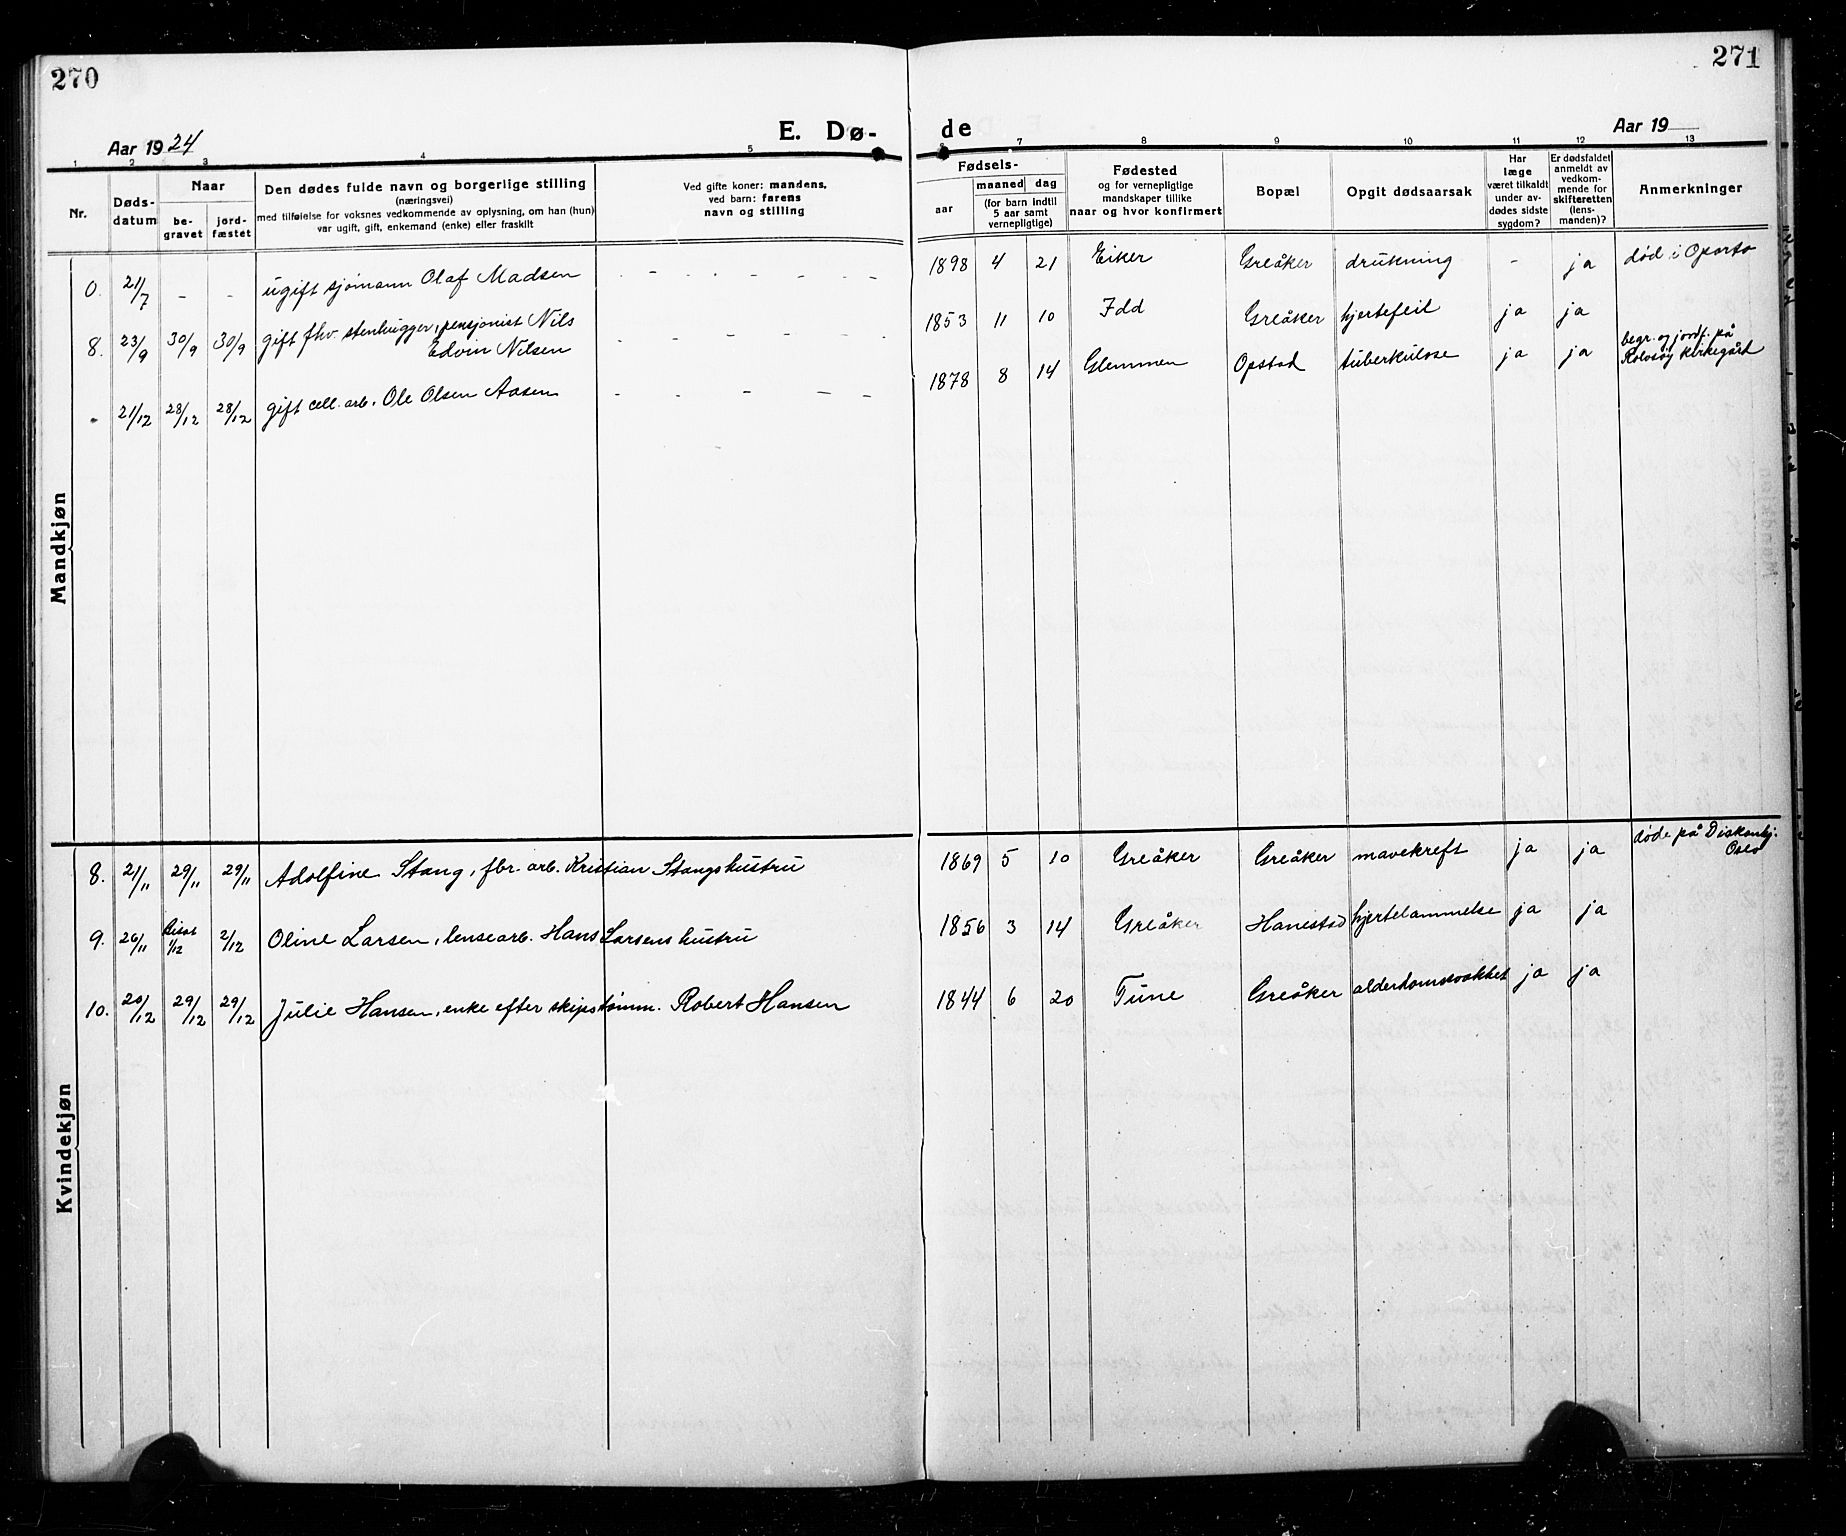 270
271
Aar 1924
E. Dø-
de
Aar 19
1 2 3 4 5 6 7 8 9 10 11 12 13
Nr.
Døds-
datum
Naar
be-
gravet
jord-
fæstet
Den dødes fulde navn og borgerlige stilling
(næringsvei)
med tilføielse for voksnes vedkommende av oplysning, om han (hun)
var ugift, gift, enkemand (enke) eller fraskilt
Ved gifte koner: mandens,
ved barn: farens
navn og stilling
Fødsels-
aar
maaned dag
(for barn indtil
5 aar samt
vernepligtige)
Fødested
og for vernepligtige
mandskaper tillike
naar og hvor konfirmert
Bopæl
Opgit dødsaarsak
Har
læge
været tilkaldt
under av-
dødes sidste
sygdom?
Er dødsfaldet
anmeldt av
vedkom-
mende for
skifteretten
(lens-
manden)?
Anmerkninger
Mandkjøn
0. 21/7 - - ugift sjømann Olaf Madsen - - - - - - 1898 4 21 Eiker Greåker drukning - ja død i Oporto
8. 23/9 30/9 30/9 gift fhv. stenhugger, pensjonist Nils
Edvin Nilsen - - - - - 1853 11 10 Idd Greåker hjertefeil ja ja
- 21/12 28/12 28/12 gift cell. arb. Ole Olsen Aasen - - - - - 1878 8 14 Glemmen Opstad tuberkulose ja ja begr. og jordf. på
Rolvsøy kirkegård
Kvindekjøn
8. 21/11 29/11 29/11 Adolfine Stang, fbr. arb. Kristian Stangs hustru 1869 5 10 Greåker Greåker mavekreft ja ja døde på Diskonhj.
Oslo
9. 26/11 1/12 2/12 Oline Larsen, lensearb. Hans Larsens hustru 1856 3 14 Greåker Hanestad hjertelammelse ja ja
10. 20/12 29/12 29/12 Julie Hansen, enke efter skipstømm. Robert Hansen 1844 6 20 Tune Greåker alderdomssvakhet ja ja